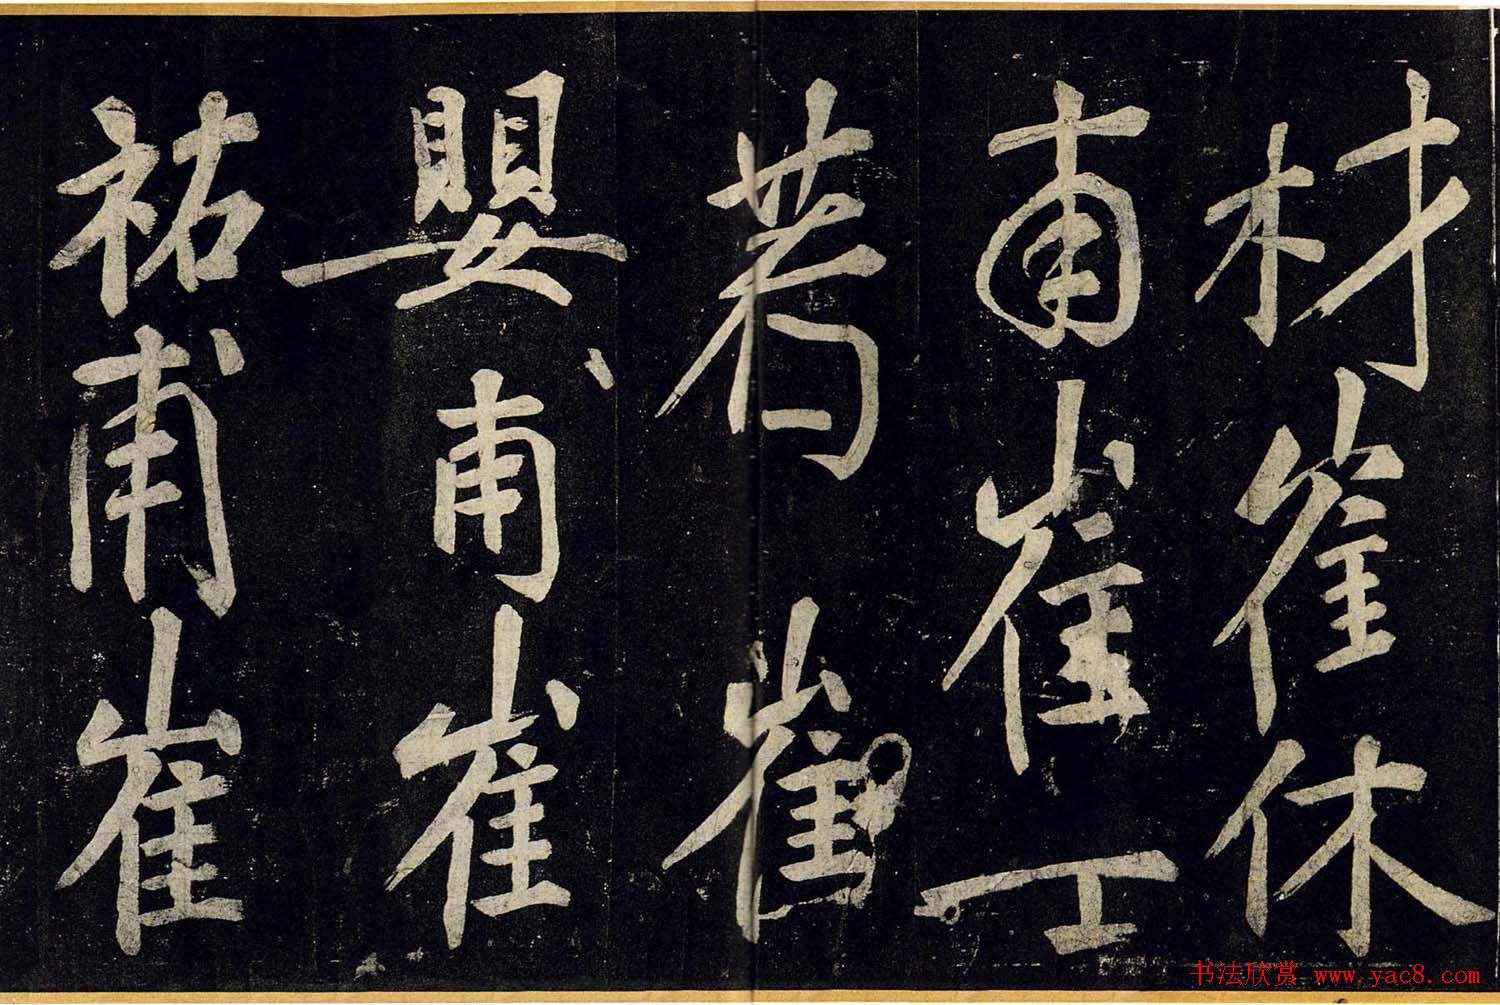 材崔休
甫崔工
耆崔
嬰甫崔
祐甫崔
书法欣赏 www.yac8.com